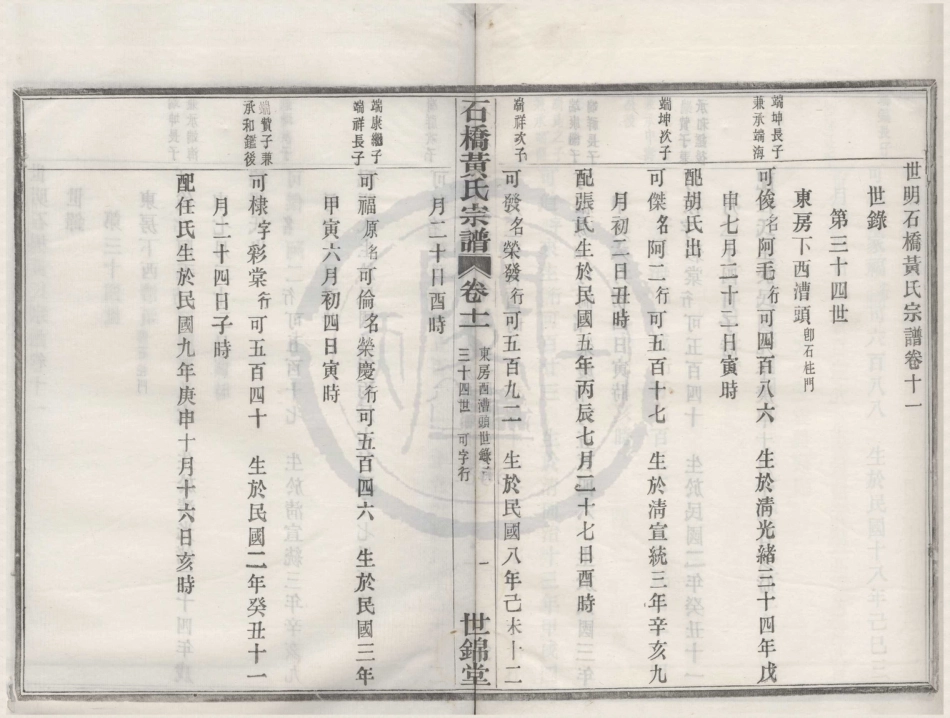 世明石橋黃氏宗譜卷十一
世錄
第三十四世
東房下西漕頭 卽石柱門
端坤長子
兼承端海
可俊 名阿毛 行可四百八六 生於清光緒三十四年戊
申七月二十二日寅時
配胡氏出
端坤次子
可傑 名阿二 行可五百十七 生於清宣統三年辛亥九
月初二日丑時
配張氏生於民國五年丙辰七月二十七日酉時
端祥次子
可發 名榮發 行可五百九二 生於民國八年己未十二
石橋黃氏宗譜 卷十一
東房西漕頭世錄
三十四世 可字行
一
世錦堂
月二十日酉時
端康繼子
端祥長子
可福 原名可倫 名榮慶 行可五百四六 生於民國三年
甲寅六月初四日寅時
端贊子兼
承和鑑後
可棣 字彩棠 行可五百四十 生於民國二年癸丑十一
月二十四日子時
配任氏生於民國九年庚申十月十六日亥時